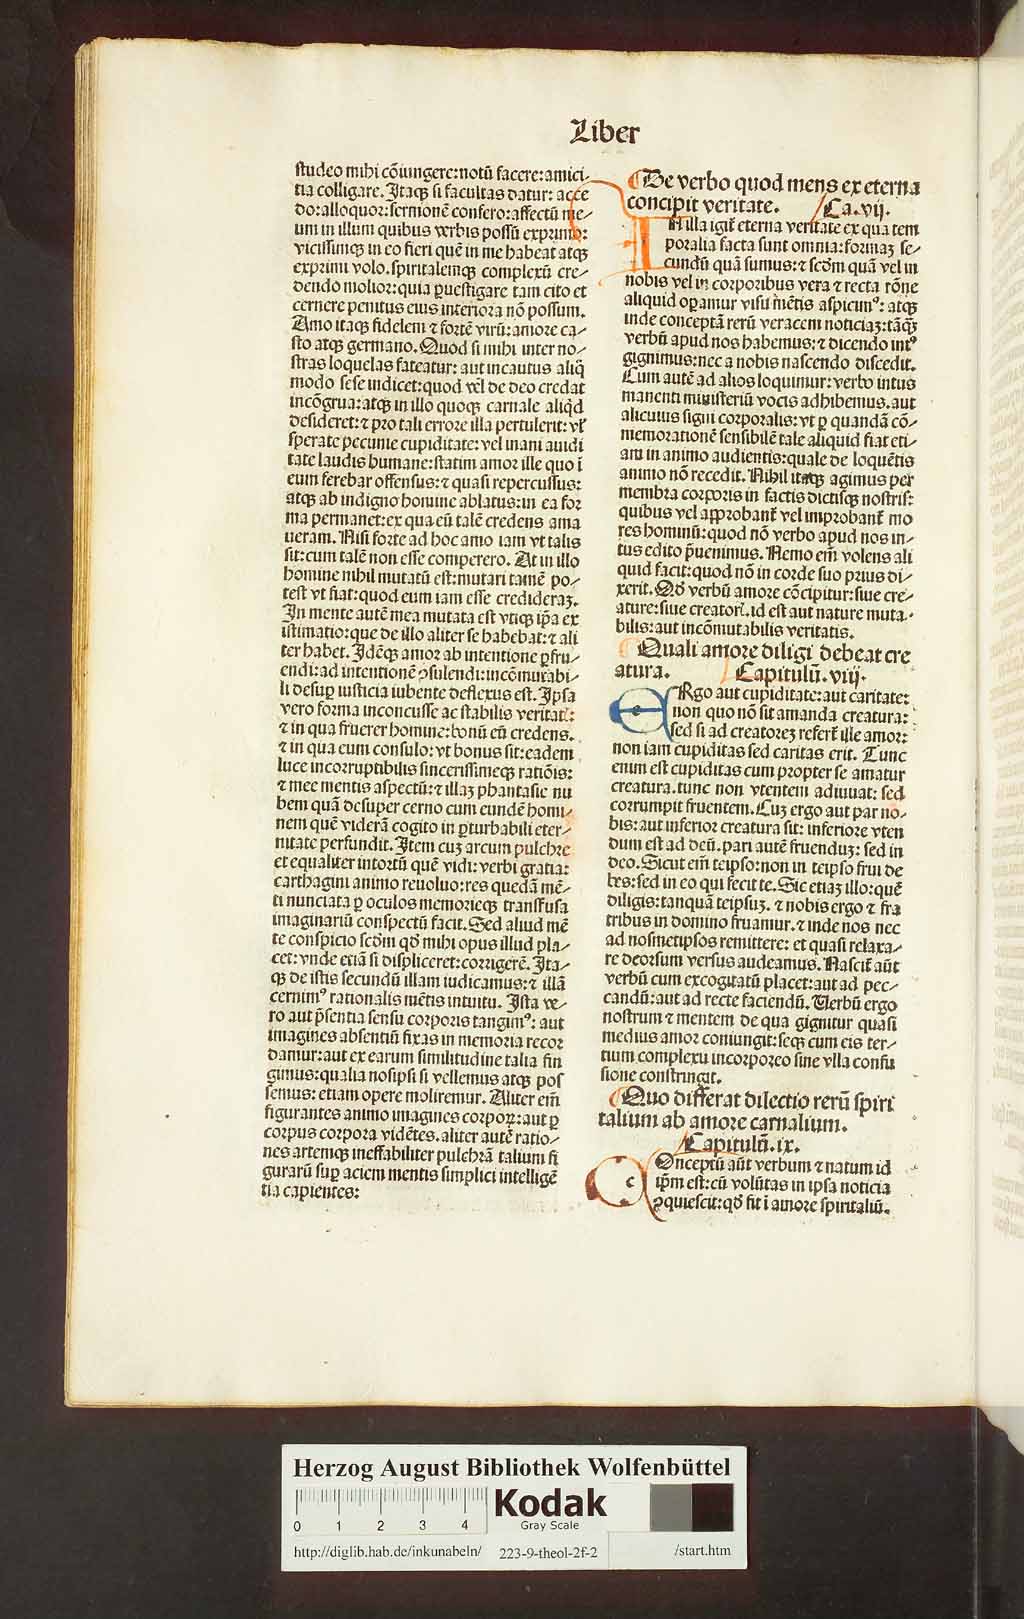 Liber
studeo mihi cõiungere:notũ facere:amici-
tia colligare. Itaqꝫ si facultas datur: acce
do:alloquor:sermonẽ confero:affectũ me-
um in illum quibus verbis possũ exprimo:
vicissimqꝫ in eo fieri quẽ in me habeat atqꝫ
exprimi volo.spiritalemqꝫ complexũ cre-
dendo molior:quia ꝑuestigare tam cito et
cernere penitus eius interiora nõ possum.
Amo itaqꝫ fidelem ⁊ fortẽ virũ:amore ca-
sto atqꝫ germano. Quod si mihi inter no-
stras loquelas fateatur: aut incautus aliq̃
modo sese indicet:quod vel de deo credat
incõgrua:atqꝫ in illo quoqꝫ carnale aliqd
desideret:⁊ pro tali errore illa pertulerit: vl̕
sperate pecunie cupiditate: vel inani auidi
tate laudis humane:statim amor ille quo ĩ
eum ferebar offensus:⁊ quasi repercussus:
atqꝫ ab indigno homine ablatus:in ea for
ma permanet:ex qua eũ talẽ credens ama
ueram. Nisi forte ad hoc amo iam vt talis
sit:cum talẽ non esse comperero. At in illo
homine nihil mutatũ est:mutari tamẽ po-
test vt fiat:quod eum iam esse credideraꝫ.
In mente autẽ mea mutata est vtiqꝫ ip̃a ex
istimatio:que de illo aliter se habebat:⁊ ali
ter habet. Idẽqꝫ amor ab intentione ꝑfru-
endi:ad intentionẽ ꝯsulendi:incõmutabi-
li desuꝑ iusticia iubente deflexus est. Ipsa
vero forma inconcusse ac stabilis veritat̕:
⁊ in qua fruerer homine:bonũ eũ credens.
⁊ in qua eum consulo: vt bonus sit:eadem
luce incorruptibilis sincerissimeqꝫ ratiõis:
⁊ mee mentis aspectũ:⁊ illaꝫ phantasie nu
bem quã desuper cerno cum eundẽ homi-
nem quẽ viderã cogito in ꝑturbabili eter-
nitate perfundit. Item cuꝫ arcum pulchre
et equaliter intortũ quẽ vidi: verbi gratia:
carthagini animo reuoluo:res quedã mẽ-
ti nunciata ꝑ oculos memorieqꝫ transfusa
imaginariũ conspectũ facit. Sed aliud mẽ
te conspicio scd̃m qd̃ mihi opus illud pla-
cet: vnde etiã si displiceret:corrigerẽ. Ita-
qꝫ de istis secundũ illam iudicamus:⁊ illã
cernimꝰ rationalis mẽtis intuitu. Ista ve-
ro aut p̃sentia sensu corporis tangimꝰ: aut
imagines absentiũ fixas in memoria recor
damur:aut ex earum similitudine talia fin
gimus:qualia nosipsi si vellemus atqꝫ pos
semus: etiam opere moliremur. Aliter em̃
figurantes animo imagines corpoꝝ:aut ꝑ
corpus corpora vidẽtes.aliter autẽ ratio-
nes artemqꝫ ineffabiliter pulchrã talium fi
gurarũ suꝑ aciem mentis simplici intelligẽ
tia capientes:
De verbo quod mens ex eterna
concipit veritate. Ca.vij.
IN illa igit̃ eterna veritate ex qua tem
poralia facta sunt omnia:formaꝫ se-
cundũ quã sumus:⁊ scd̃m quã vel in
nobis vel in corporibus vera ⁊ recta rõne
aliquid oꝑamur visu mẽtis aspicimꝰ: atqꝫ
inde conceptã rerũ veracem noticiaꝫ:tãqꝫ
verbũ apud nos habemus:⁊ dicendo intꝰ
gignimus:nec a nobis nascendo discedit.
Cum autẽ ad alios loquimur: verbo intus
manenti ministeriũ vocis adhibemus.aut
alicuius signi corporalis: vt ꝑ quandã cõ-
memorationẽ sensibilẽ tale aliquid fiat eti-
am in animo audientis:quale de loquẽtis
animo nõ recedit. Nihil itaqꝫ agimus per
membra corporis in factis dictisqꝫ nostris:
quibus vel approbant̃ vel improbant̃ mo
res hominũ:quod nõ verbo apud nos in-
tus edito p̃uenimus. Nemo em̃ volens ali
quid facit:quod nõ in corde suo prius di-
xerit. Qd̃ verbũ amore cõcipitur:siue cre-
ature:siue creator̕.id est aut nature muta-
bilis:aut incõmutabilis veritatis.
Quali amore diligi debeat cre
atura. Capitulũ.viij.
ERgo aut cupiditate:aut caritate:
non quo nõ sit amanda creatura:
sed si ad creatoreꝫ refert̃ ille amor:
non iam cupiditas sed caritas erit. Tunc
enim est cupiditas cum propter se amatur
creatura.tunc non vtentem adiuuat: sed
corrumpit fruentem. Cuꝫ ergo aut par no-
bis:aut inferior creatura sit: inferiore vten
dum est ad deũ.pari autẽ fruenduꝫ: sed in
deo. Sicut em̃ teipso:non in teipso frui de
bes:sed in eo qui fecit te. Sic etiaꝫ illo:quẽ
diligis:tanquã teipsuꝫ. ⁊ nobis ergo ⁊ fra
tribus in domino fruamur.⁊ inde nos nec
ad nosmetipsos remittere: et quasi relaxa-
re deorsum versus audeamus. Nascit̃ aũt
verbũ cum excogitatũ placet:aut ad pec-
candũ:aut ad recte faciendũ. Verbũ ergo
nostrum ⁊ mentem de qua gignitur quasi
medius amor coniungit:seqꝫ cum eis ter-
tium complexu incorporeo sine vlla confu
sione constringit.
Quo differat dilectio rerũ spiri
talium ab amore carnalium.
Capitulũ.ix.
COnceptũ aũt verbum ⁊ natum id
ip̃m est:cũ volũtas in ipsa noticia
ꝯquiescit:qd̃ fit ĩ amore spiritaliũ.
Herzog August Bibliothek Wolfenbüttel
0 1 2 3 4
Kodak
Gray Scale
http://diglib.hab.de/inkunabeln/ 223-9-theol-2f-2 /start.htm